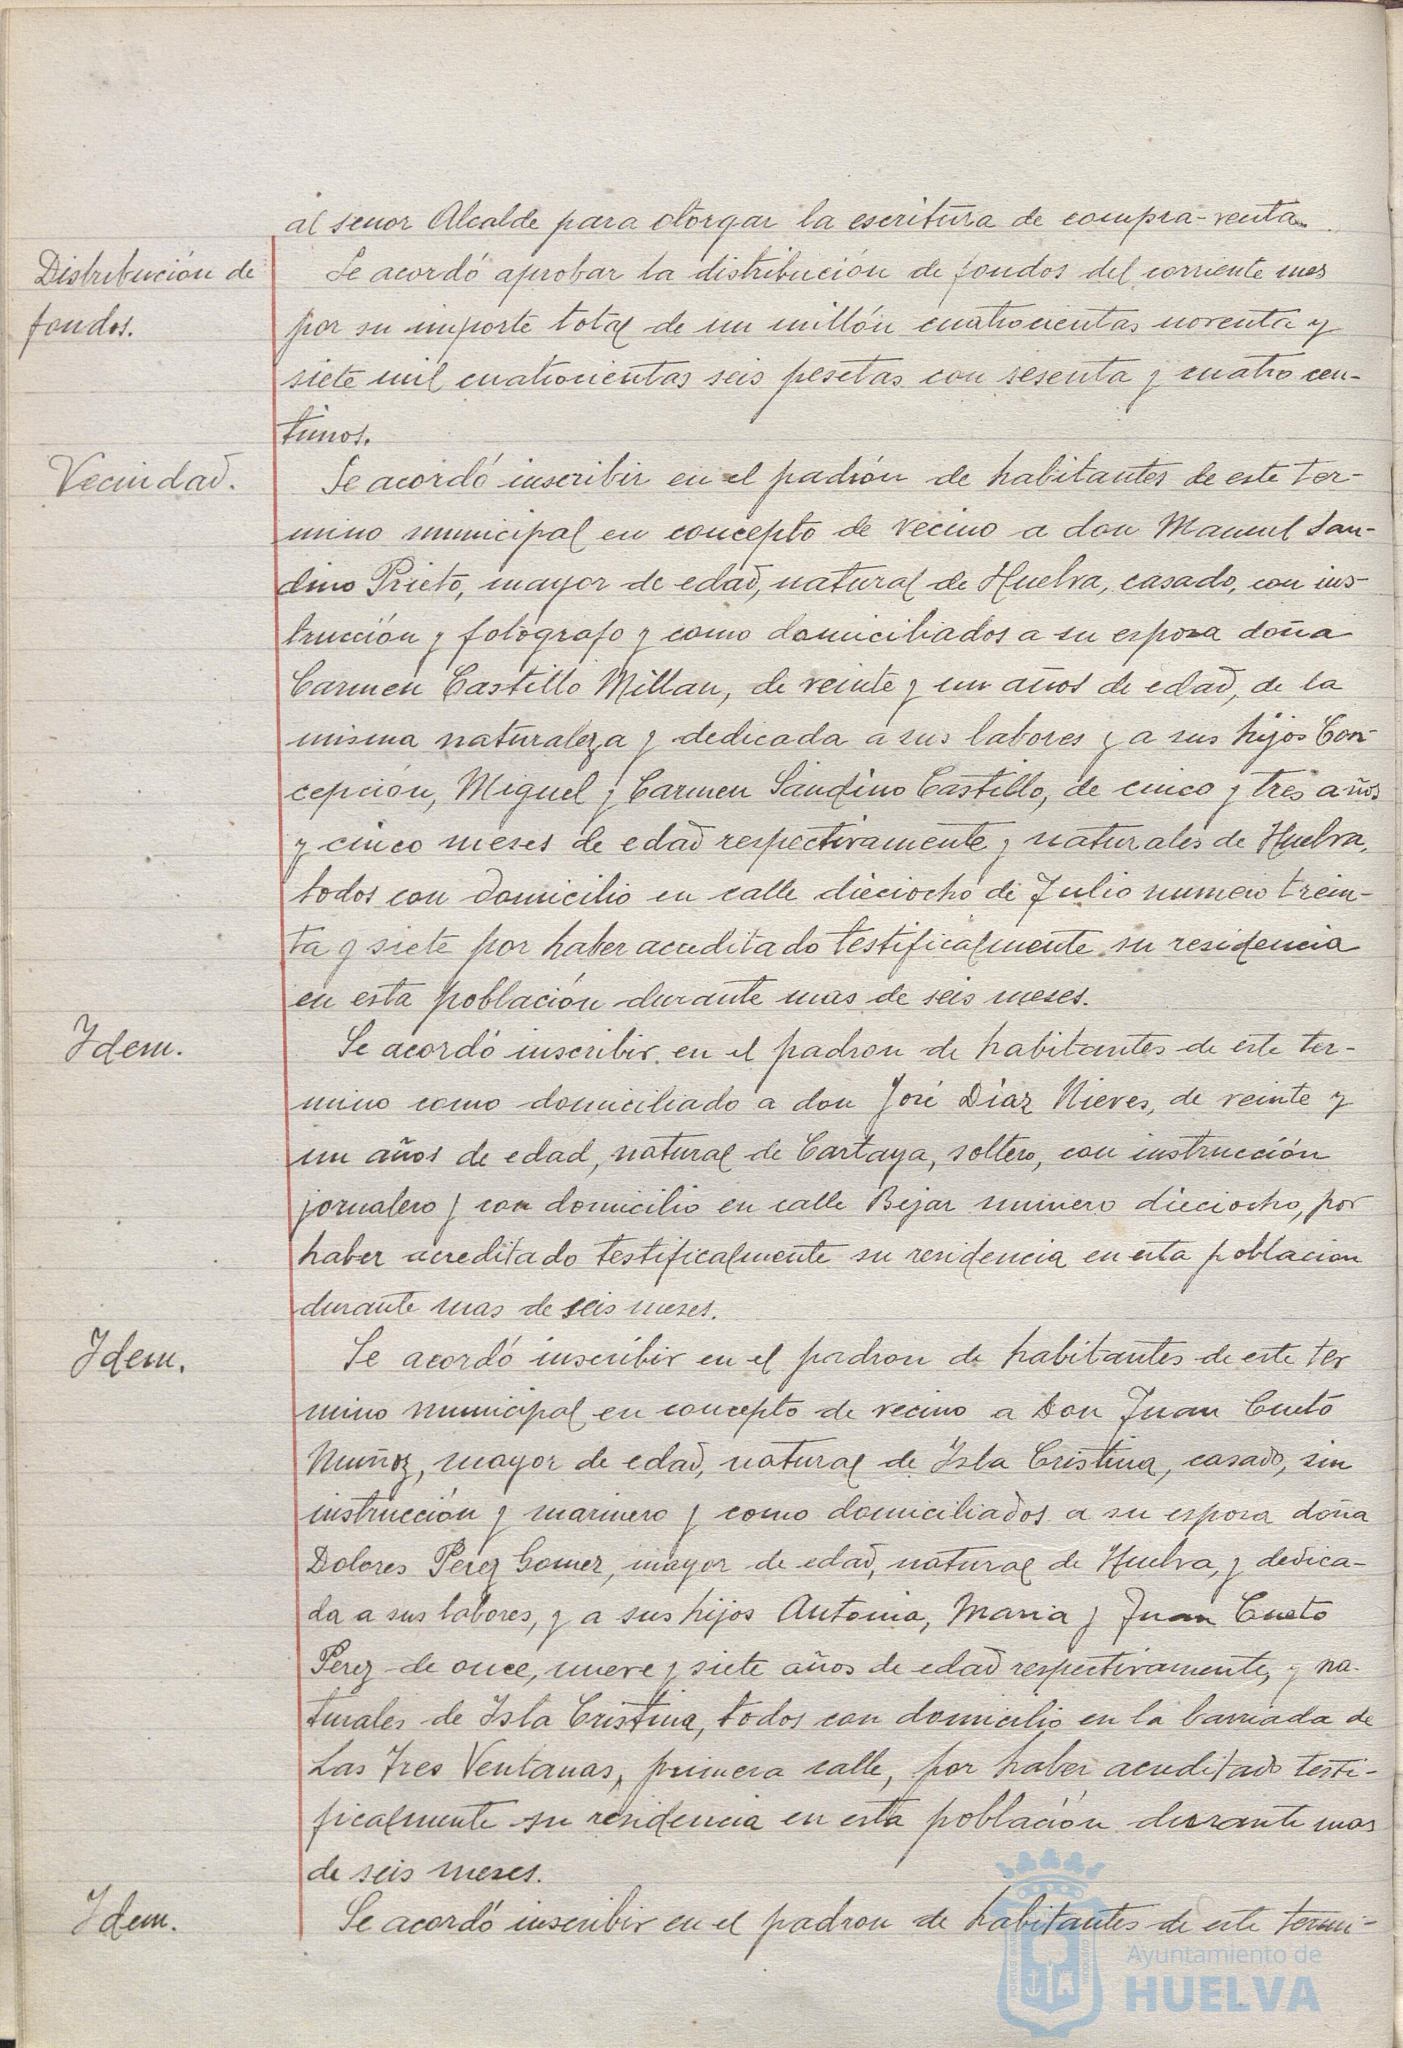 al senor Alcalde para otorgar la escritura de compra-venta.
Distribución de
fondos.
Se acordó aprobar la distribución de fondos del corriente mes
por su importe total de un millón cuatrocientas noventa y
siete mil cuatrocientas seis pesetas con sesenta y cuatro cen-
timos.
Vecindad.
Se acordó inscribir en el padrón de habitantes de este ter-
mino municipal en concepto de vecino a don Manuel San-
dino Prieto, mayor de edad, natural de Huelva, casado, con ins-
trucción y fotografo y como domiciliados a su esposa doña
Carmen Castillo Millan, de veinte y un años de edad, de la
misma naturaleza y dedicada a sus labores y a sus hijos Con-
cepción, Miguel y Carmen Sandino Castillo, de cinco y tres años
y cinco meses de edad respectivamente y naturales de Huelva,
todos con domicilio en calle dieciocho de Julio numero trein-
ta y siete por haber acreditado testificalmente su residencia
en esta población durante mas de seis meses.
Idem.
Se acordó inscribir en el padron de habitantes de este ter-
mino como domiciliado a don José Díaz Nieves, de veinte y
un años de edad, natural de Cartaya, soltero, con instrucción
jornalero y con domicilio en calle Bejar numero dieciocho, por
haber acreditado testificalmente su residencia en esta poblacion
durante mas de seis meses.
Idem.
Se acordó inscribir en el padron de habitantes de este ter
mino municipal en concepto de vecino a Don Juan Cueto
Muñoz, mayor de edad, natural de Isla Cristina, casado, sin
instrucción y marinero y como domiciliados a su esposa doña
Dolores Perez Gomez, mayor de edad, natural de Huelva, y dedica-
da a sus labores, y a sus hijos Antonia, Maria y Juan Cueto
Perez de once, nueve y siete años de edad respectivamente, y na-
turales de Isla Cristina, todos con domicilio en la barriada de
Las Tres Ventanas, primera calle, por haber acreditado testi-
ficalmente su residencia en esta población durante mas
de seis meses.
Idem.
Se acordó inscribir en el padron de habitantes de este termi-
Ayuntamiento de
HUELVA